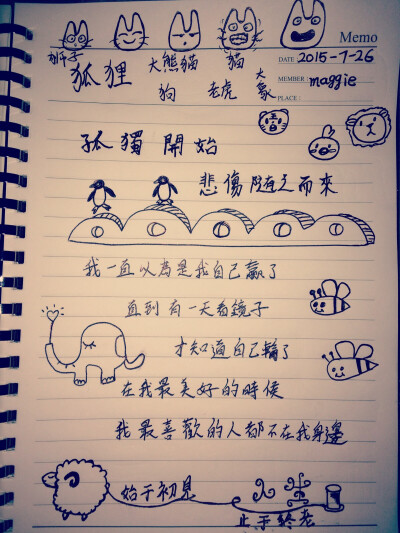 Memo
DATE : 2015-7-26
MEMBER : maggie
PLACE :
狮子
狐狸
大熊貓
貓
狗
老虎
大象
孤獨開始
悲傷隨之而來
我一直以為是我自己贏了
直到有一天看鏡子
才知道自己輸了
在我最美好的時候
我最喜歡的人都不在我身邊
始于初見
止于終老